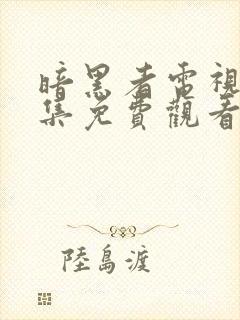 暗黑者電視
集免費觀看
陸島渡